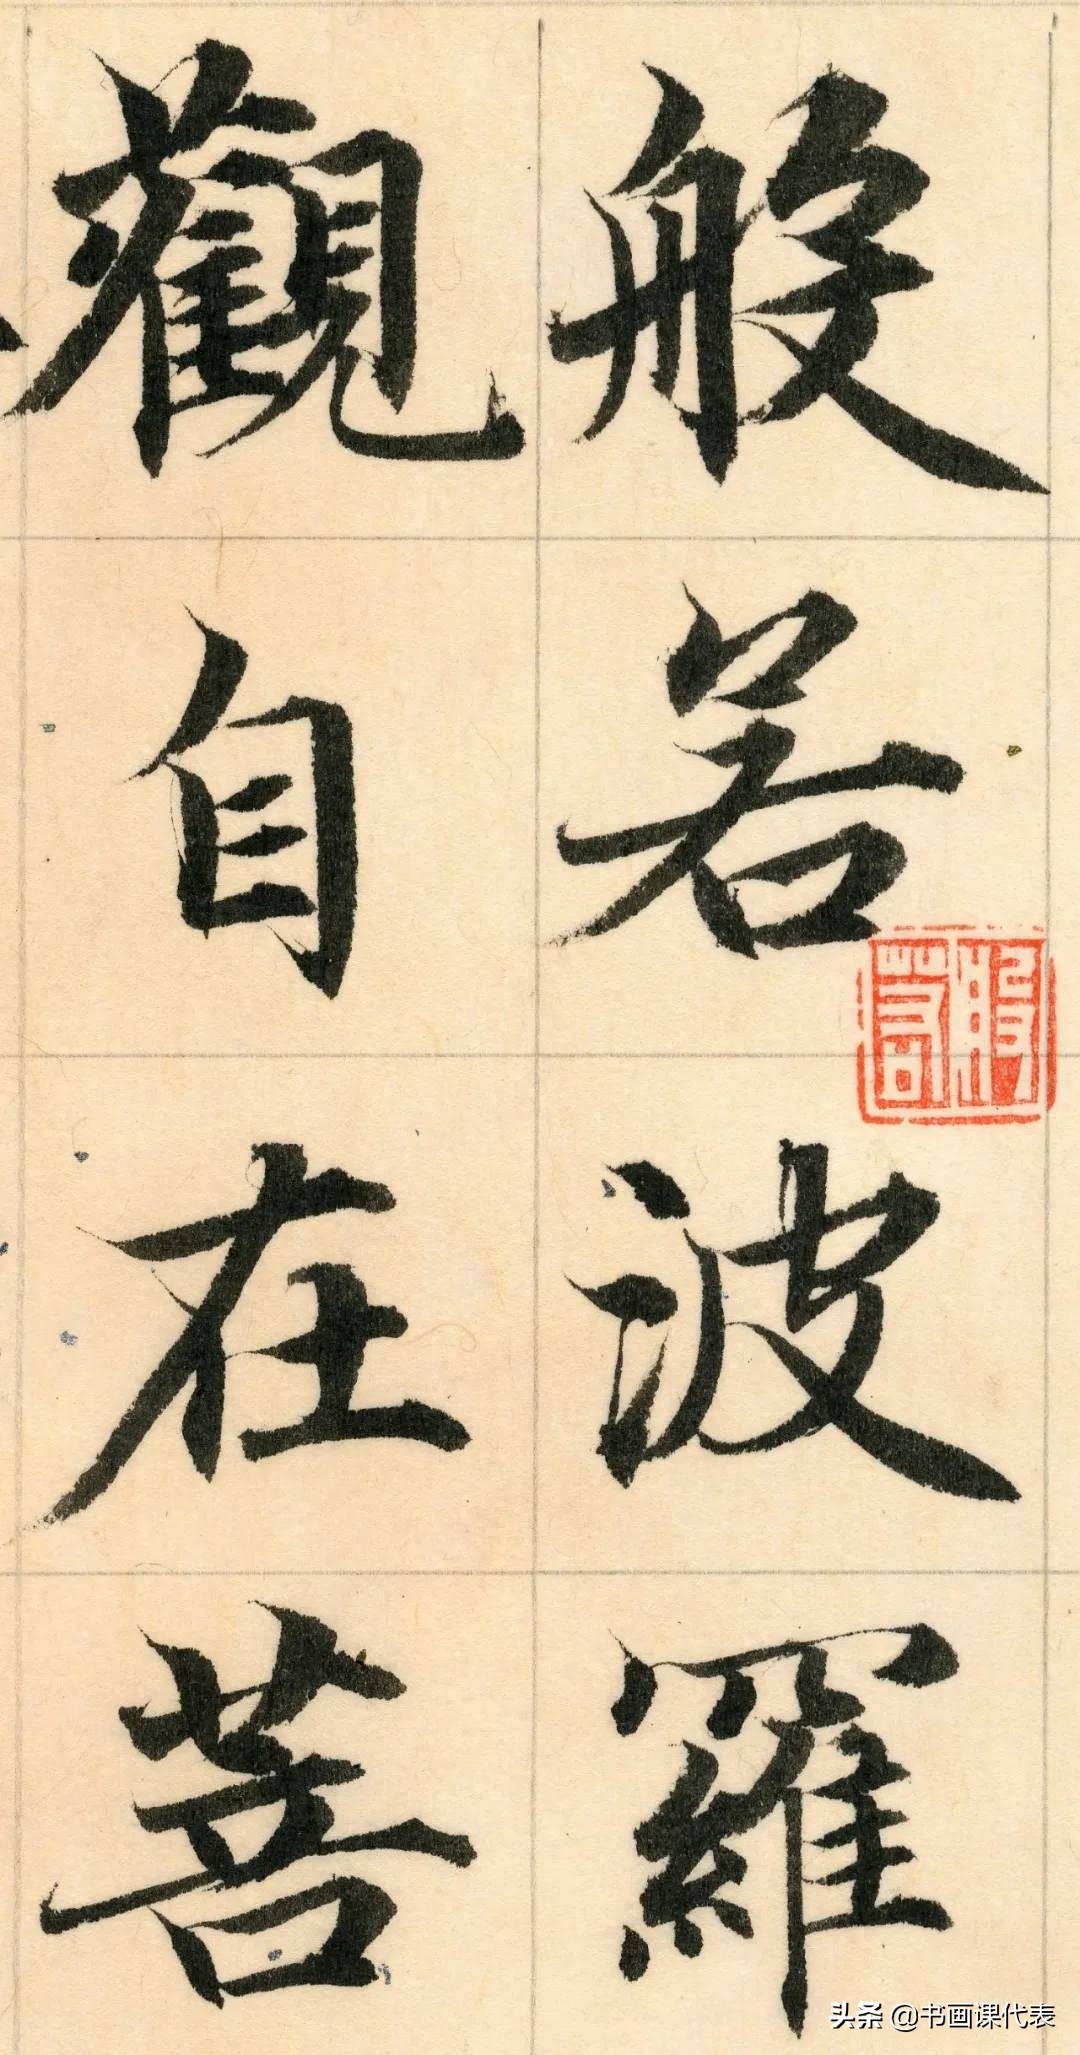 般若波羅
觀自在菩
般若
头条 @书画课代表